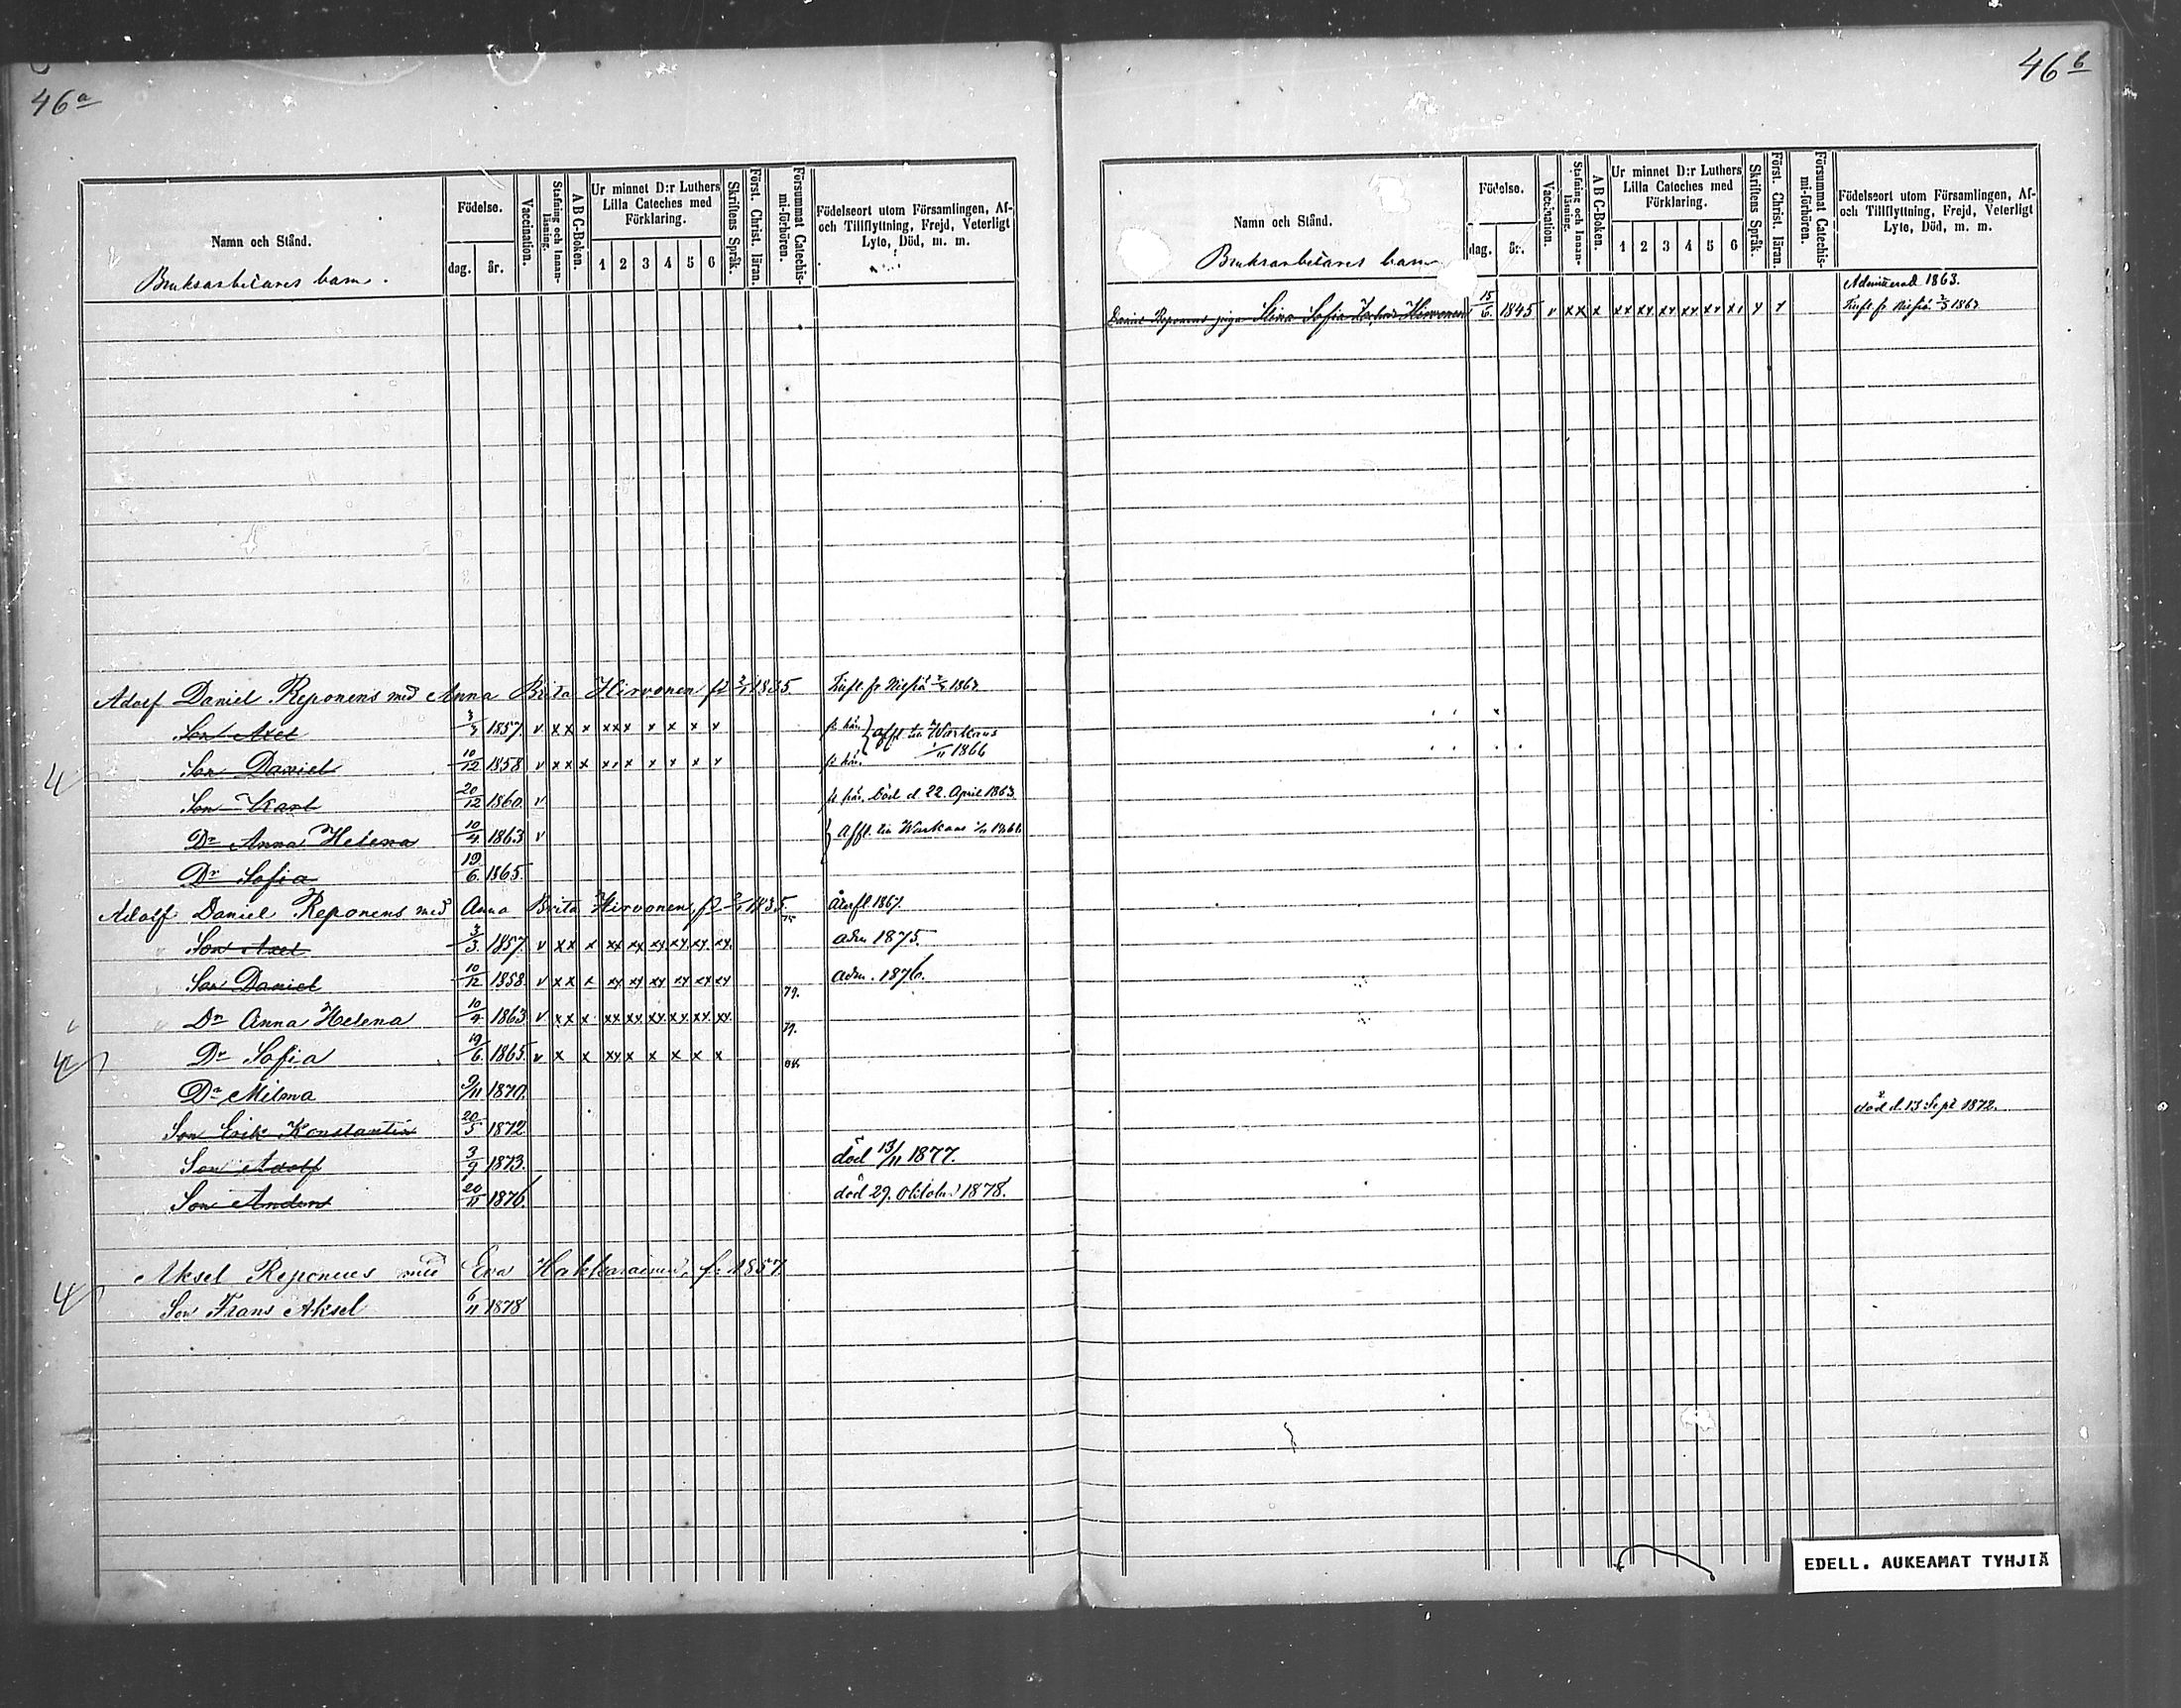 46 a
Namn och Stånd.
Bruksarbetares barn.
Födelse.
dag. år.
Vaccination.
Stafning och Innanläsning.
A B C-Boken.
Ur minnet D:r Luthers Lilla Cateches med Förklaring.
1 2 3 4 5 6
Skriftens Språk.
Först. Christ. läran.
Försummat Catechismi-förhören.
Födelseort utom Församlingen, Af- och Tillflyttning, Frejd, Veterligt Lyte, Död, m. m.
Adolf Daniel Reponens med Anna Brita Hirvonen 1835
Son Axel 1857 v xx x xxx x x x x Affl. till Warkaus
Son Daniel 10/12 1858 v xx x x x x x x x 1/11 1866
Son Karl 20/12 1860 v död d 22. April 1863.
Dr Anna Helena 10/4 1863 v Affl. till Warkaus
Dr Sofia 19/6 1865.
Adolf Daniel Reponens med Anna Brita Hirvonen 1835 Återfl. 1867.
Son Axel 3/3 1857. v xx x xx xx xx xx xx xx adm 1875.
Son Daniel 10/12 1858 v xx x xx xx xx xx xx xx adm. 1876.
79.
Dr Anna Helena 10/4 1863 v xx x xx xx xx xx xx xx
79.
Dr Sofia 19/6 1865 v x x xx x x x x x
Dr Milma 9/11 1870.
Son Erik Konstantin 20/5 1872
Son Adolf 3/9 1873. död 13/11 1877.
Son Anders 20/11 1876. död 29. Oktober 1878.
Aksel Reponens med Eva Hakkarainen, f. 1857.
Son Frans Aksel 6/11 1878
4
4
4
46 b
Namn och Stånd.
Bruksarbetares barn
Födelse.
dag. år.
Vaccination.
Stafning och Innanläsning.
A B C-Boken.
Ur minnet D:r Luthers Lilla Cateches med Förklaring.
1 2 3 4 5 6
Skriftens Språk.
Först. Christ. läran.
Försummat Catechismi-förhören.
Födelseort utom Församlingen, Af- och Tillflyttning, Frejd, Veterligt Lyte, Död, m. m.
Admitterad 1863.
Daniel Reponens piga Stina Sofia Hirvonen 15/6. 1845 v xx x xx xx xx xx xx xx
död d. 13 Sept 1872.
EDELL. AUKEAMAT TYHJIÄ